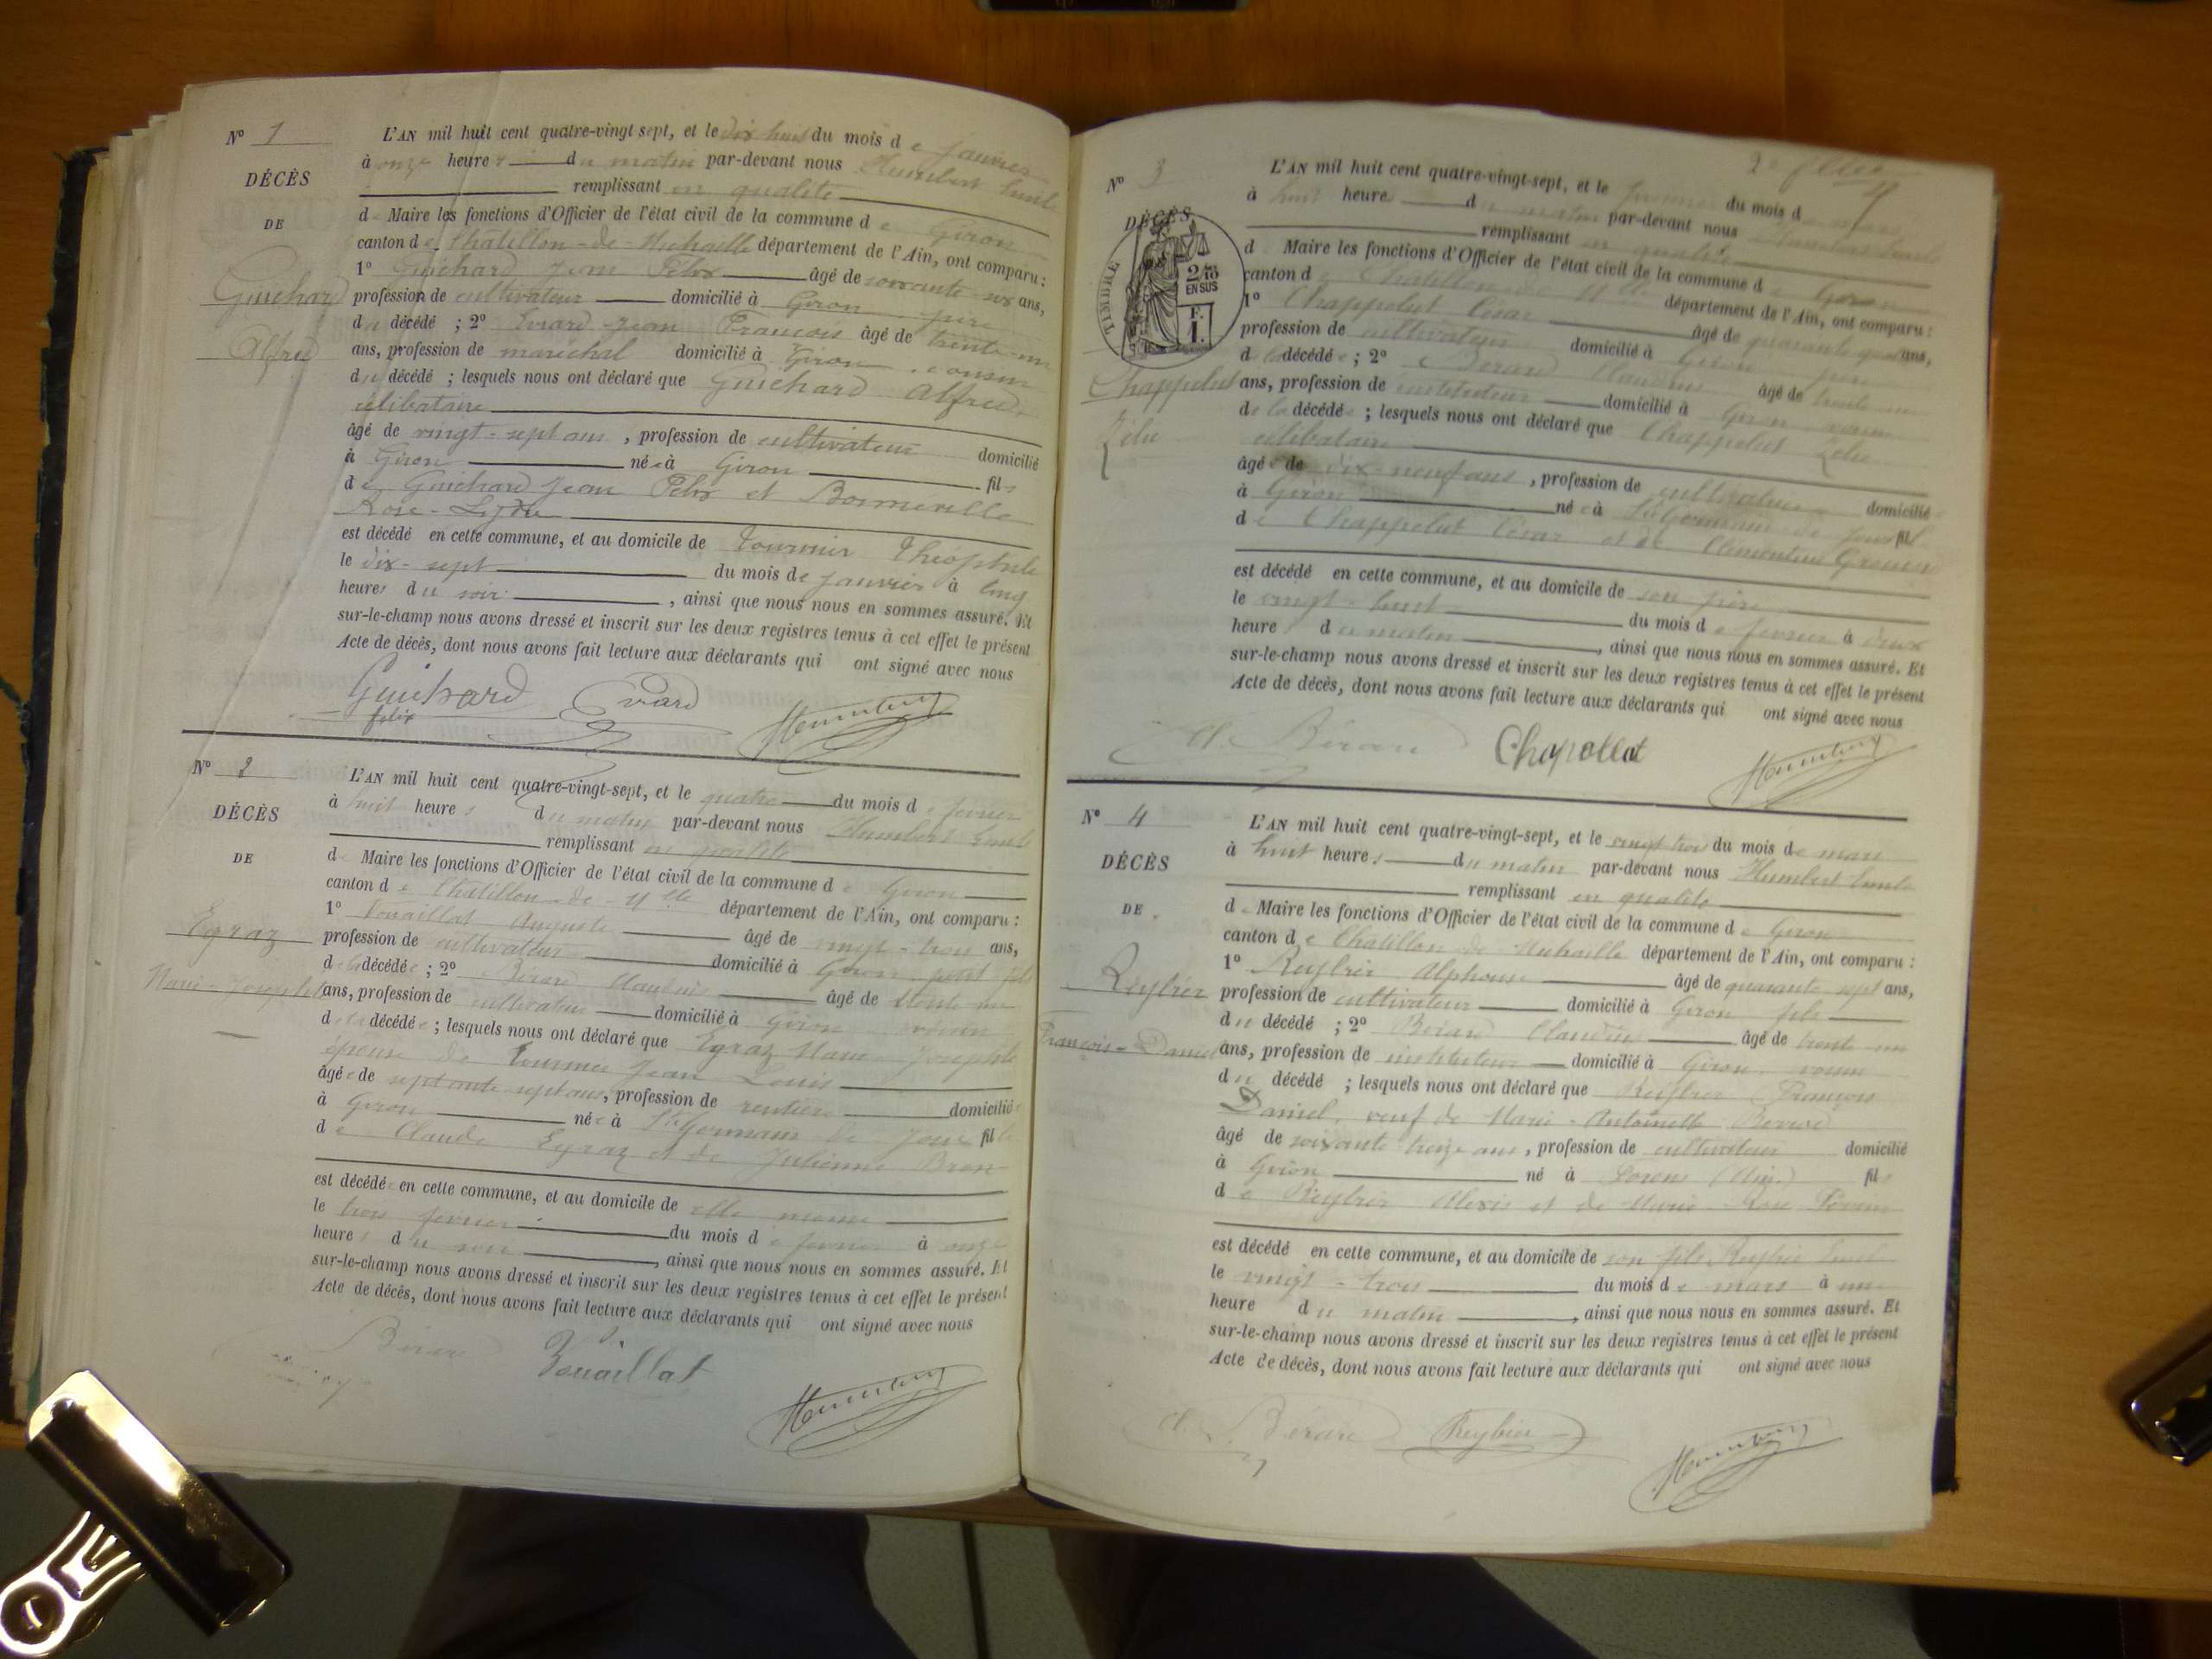 N° 1
DÉCÈS
DE
Guichard
Alfred
L'AN mil huit cent quatre-vingt sept, et le dix huit du mois de janvier
à onze heures du matin par-devant nous Humbert Emile
remplissant en qualité
de Maire les fonctions d'Officier de l'état civil de la commune de Giron
canton de Châtillon-de-Michaille département de l'Ain, ont comparu :
1° Guichard Jean Félix âgé de soixante-six ans,
profession de cultivateur domicilié à Giron père
du décédé ; 2° Evrard Jean François âgé de trente-un
ans, profession de maréchal domicilié à Giron, cousin
du décédé ; lesquels nous ont déclaré que Guichard Alfred
célibataire
âgé de vingt-sept ans, profession de cultivateur domicilié
à Giron né à Giron fils
de Guichard Jean Félix et Bonneville
Rose-Lydie
est décédé en cette commune, et au domicile de Tournier Théophile
le dix-sept du mois de janvier à cinq
heures du soir, ainsi que nous nous en sommes assuré. Et
sur-le-champ nous avons dressé et inscrit sur les deux registres tenus à cet effet le présent
Acte de décès, dont nous avons fait lecture aux déclarants qui ont signé avec nous
Guichard Evrard Humbert
felix
N° 2
DÉCÈS
DE
Egraz
Marie-Josephte
L'AN mil huit cent quatre-vingt-sept, et le quatre du mois de février
à huit heures du matin par-devant nous Humbert Emile
remplissant en qualité
de Maire les fonctions d'Officier de l'état civil de la commune de Giron
canton de Châtillon-de-Mlle département de l'Ain, ont comparu :
1° Vouaillat Auguste âgé de vingt-trois ans,
profession de cultivateur domicilié à Giron petit fils
de la décédée ; 2° Bérard Claudius âgé de trente un
ans, profession de domicilié à Giron voisin
de la décédée ; lesquels nous ont déclaré que Egraz Marie Josephte
épouse de Tournier Jean Louis
âgée de septante sept ans, profession de rentière domiciliée
à Giron née à St Germain de Joux fille
de Claude Egraz et de Julienne
est décédée en cette commune, et au domicile de elle même
le trois février du mois de février à onze
heures du soir, ainsi que nous nous en sommes assuré. Et
sur-le-champ nous avons dressé et inscrit sur les deux registres tenus à cet effet le présent
Acte de décès, dont nous avons fait lecture aux déclarants qui ont signé avec nous
Bérard Vouaillat Humbert
N° 3
DÉCÈS
TIMBRE
2/10
EN SUS
1 F.
Chappelut
Zélie
L'AN mil huit cent quatre-vingt-sept, et le du mois d
à huit heures du matin par-devant nous Humbert Emile
remplissant en qualité
d Maire les fonctions d'Officier de l'état civil de la commune de Giron
canton de Châtillon de département de l'Ain, ont comparu :
1° Chappelut César âgé de quarante quatre ans,
profession de cultivateur domicilié à Giron père
de la décédée ; 2° Bérard Claudius âgé de trente un
ans, profession de instituteur domicilié à Giron voisin
de la décédée ; lesquels nous ont déclaré que Chappelut Zélie
célibataire
âgée de dix-neuf ans, profession de cultivatrice domiciliée
à Giron née à St Germain de Joux fil
de Chappelut César et de Clémentine
est décédé en cette commune, et au domicile de son père
le vingt-huit du mois de février à deux
heure du matin, ainsi que nous nous en sommes assuré. Et
sur-le-champ nous avons dressé et inscrit sur les deux registres tenus à cet effet le présent
Acte de décès, dont nous avons fait lecture aux déclarants qui ont signé avec nous
Cl. Bérard Chapollat Humbert
N° 4
DÉCÈS
DE
Reybier
François-Daniel
L'AN mil huit cent quatre-vingt-sept, et le vingt trois du mois de mars
à huit heures du matin par-devant nous Humbert Emile
remplissant en qualité
de Maire les fonctions d'Officier de l'état civil de la commune de Giron
canton de Châtillon de Michaille département de l'Ain, ont comparu :
1° Reybier Alphonse âgé de quarante sept ans,
profession de cultivateur domicilié à Giron fils
du décédé ; 2° Bérard Claudius âgé de trente un
ans, profession de instituteur domicilié à Giron voisin
du décédé ; lesquels nous ont déclaré que Reybier François
Daniel, veuf de Marie-Antoinette
âgé de soixante treize ans, profession de cultivateur domicilié
à Giron né à fils
de Reybier Alexis et de Marie Rose
est décédé en cette commune, et au domicile de son fils Reybier
le vingt-trois du mois de mars à une
heure du matin, ainsi que nous nous en sommes assuré. Et
sur-le-champ nous avons dressé et inscrit sur les deux registres tenus à cet effet le présent
Acte de décès, dont nous avons fait lecture aux déclarants qui ont signé avec nous
Cl. Bérard Reybier Humbert